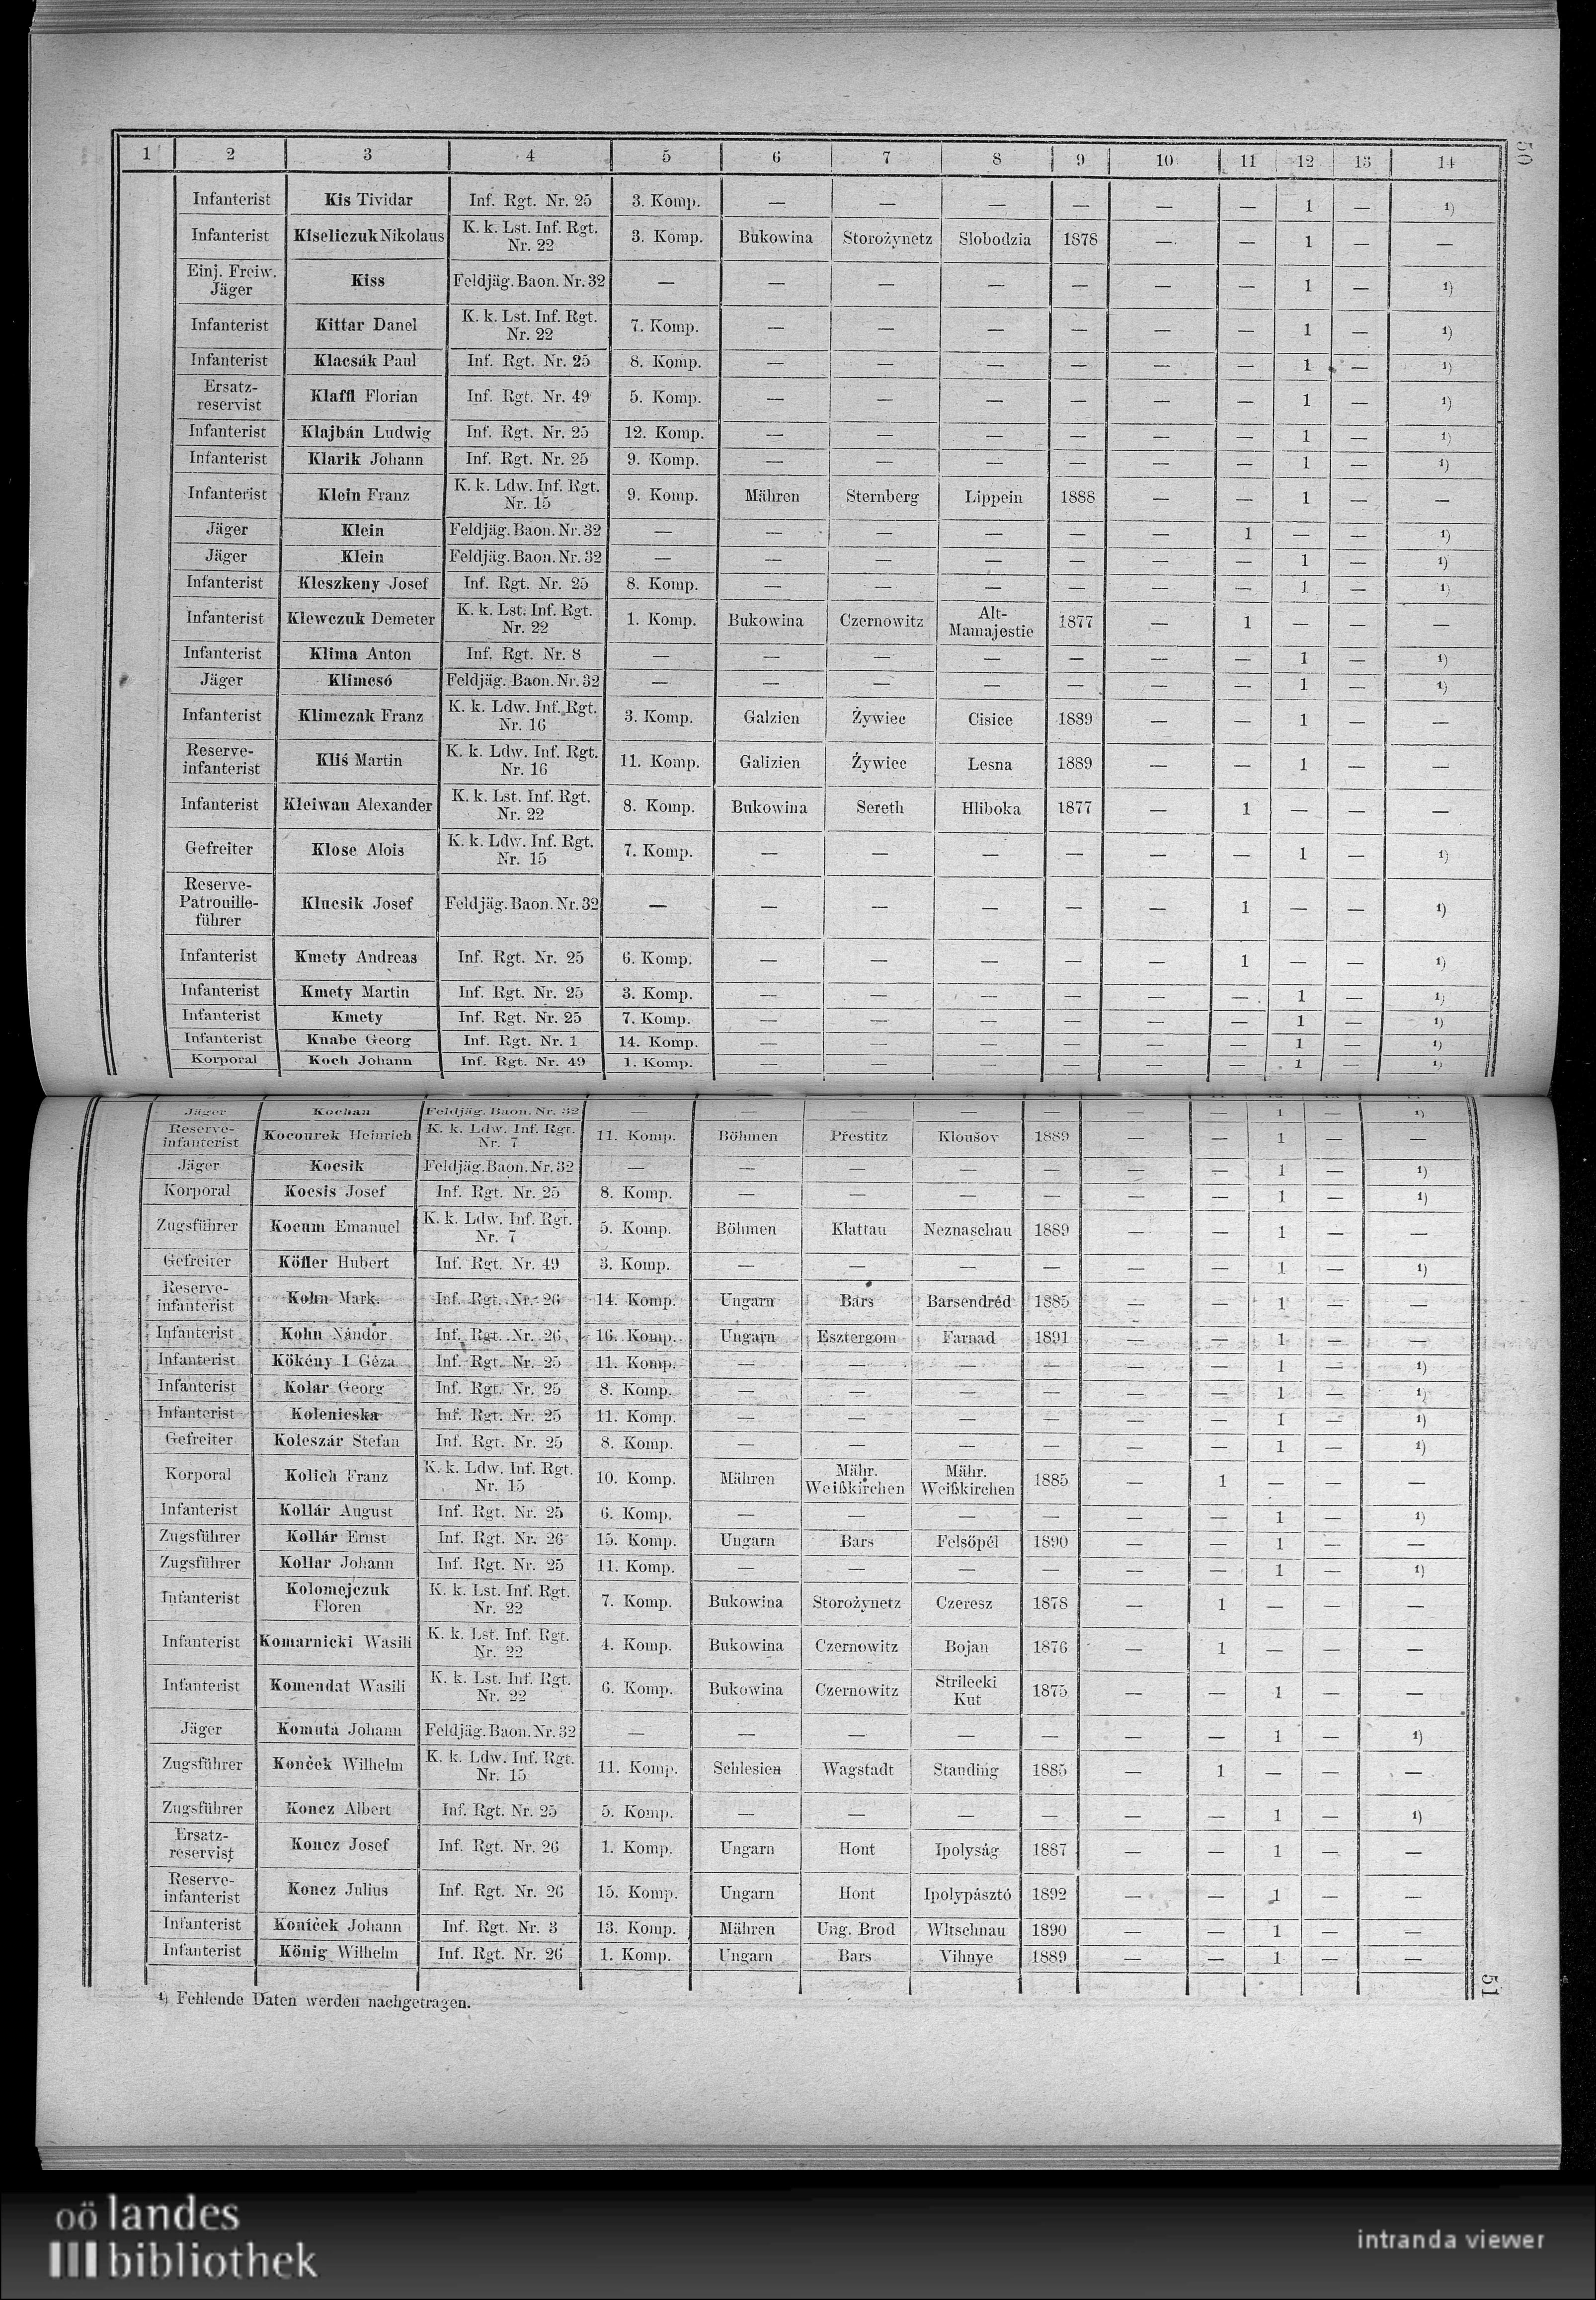 50
1 2 3 4 5 6 7 8 9 10 11 12 13 14
Infanterist Kis Tividar Inf. Rgt. Nr. 25 3. Komp. — — — — — — 1 — ¹)
Infanterist Kiseliczuk Nikolaus K. k. Lst. Inf. Rgt. Nr. 22 3. Komp. Bukowina Storożynetz Slobodzia 1878 — — 1 — —
Einj. Freiw. Jäger Kiss Feldjäg. Baon. Nr. 32 — — — — — — — 1 — ¹)
Infanterist Kittar Danel K. k. Lst. Inf. Rgt. Nr. 22 7. Komp. — — — — — — 1 — ¹)
Infanterist Klacsák Paul Inf. Rgt. Nr. 25 8. Komp. — — — — — — 1 — ¹)
Ersatz-reservist Klaffl Florian Inf. Rgt. Nr. 49 5. Komp. — — — — — — 1 — ¹)
Infanterist Klajbán Ludwig Inf. Rgt. Nr. 25 12. Komp. — — — — — — 1 — ¹)
Infanterist Klarik Johann Inf. Rgt. Nr. 25 9. Komp. — — — — — — 1 — ¹)
Infanterist Klein Franz K. k. Ldw. Inf. Rgt. Nr. 15 9. Komp. Mähren Sternberg Lippein 1888 — — 1 — —
Jäger Klein Feldjäg. Baon. Nr. 32 — — — — — — 1 — — ¹)
Jäger Klein Feldjäg. Baon. Nr. 32 — — — — — — — 1 — ¹)
Infanterist Kleszkeny Josef Inf. Rgt. Nr. 25 8. Komp. — — — — — — 1 — ¹)
Infanterist Klewczuk Demeter K. k. Lst. Inf. Rgt. Nr. 22 1. Komp. Bukowina Czernowitz Alt-Mamajestie 1877 — 1 — — —
Infanterist Klima Anton Inf. Rgt. Nr. 8 — — — — — — — 1 — ¹)
Jäger Klimcsó Feldjäg. Baon. Nr. 32 — — — — — — — 1 — ¹)
Infanterist Klimczak Franz K. k. Ldw. Inf. Rgt. Nr. 16 3. Komp. Galzien Żywiec Cisice 1889 — — 1 — —
Reserve-infanterist Kliś Martin K. k. Ldw. Inf. Rgt. Nr. 16 11. Komp. Galizien Żywiec Lesna 1889 — — 1 — —
Infanterist Kleiwan Alexander K. k. Lst. Inf. Rgt. Nr. 22 8. Komp. Bukowina Sereth Hliboka 1877 — 1 — — —
Gefreiter Klose Alois K. k. Ldw. Inf. Rgt. Nr. 15 7. Komp. — — — — — — 1 — ¹)
Reserve-Patrouille-führer Klucsik Josef Feldjäg. Baon. Nr. 32 — — — — — — 1 — — ¹)
Infanterist Kmety Andreas Inf. Rgt. Nr. 25 6. Komp. — — — — — 1 — — ¹)
Infanterist Kmety Martin Inf. Rgt. Nr. 25 3. Komp. — — — — — — 1 — ¹)
Infanterist Kmety Inf. Rgt. Nr. 25 7. Komp. — — — — — — 1 — ¹)
Infanterist Knabe Georg Inf. Rgt. Nr. 1 14. Komp. — — — — — — 1 — ¹)
Korporal Koch Johann Inf. Rgt. Nr. 49 1. Komp. — — — — — — 1 — ¹)
Jäger Kochan Feldjäg. Baon. Nr. 32 — — — 1 — ¹)
Reserve-infanterist Kocourek Heinrich K. k. Ldw. Inf. Rgt. Nr. 7 11. Komp. Böhmen Přestitz Kloušov 1889 — — 1 — —
Jäger Kocsik Feldjäg. Baon. Nr. 32 — — — — — — — 1 — ¹)
Korporal Kocsis Josef Inf. Rgt. Nr. 25 8. Komp. — — — — — — 1 — ¹)
Zugsführer Kocum Emanuel K. k. Ldw. Inf. Rgt. Nr. 7 5. Komp. Böhmen Klattau Neznaschau 1889 — — 1 — —
Gefreiter Köfler Hubert Inf. Rgt. Nr. 49 3. Komp. — — — — — — 1 — ¹)
Reserve-infanterist Kohn Mark. Inf. Rgt. Nr. 26 14. Komp. Ungarn Bars Barsendréd 1885 — — 1 — —
Infanterist Kohn Nándor Inf. Rgt. Nr. 26 16. Komp. Ungarn Esztergom Farnad 1891 — — 1 — —
Infanterist Kökény I Géza Inf. Rgt. Nr. 25 11. Komp. — — — — — — 1 — ¹)
Infanterist Kolar Georg Inf. Rgt. Nr. 25 8. Komp. — — — — — — 1 — ¹)
Infanterist Kolenicska Inf. Rgt. Nr. 25 11. Komp. — — — — — — 1 — ¹)
Gefreiter Koleszár Stefan Inf. Rgt. Nr. 25 8. Komp. — — — — — — 1 — ¹)
Korporal Kolich Franz K. k. Ldw. Inf. Rgt. Nr. 15 10. Komp. Mähren Mähr. Weißkirchen Mähr. Weißkirchen 1885 — 1 — — —
Infanterist Kollár August Inf. Rgt. Nr. 25 6. Komp. — — — — — — 1 — ¹)
Zugsführer Kollár Ernst Inf. Rgt. Nr. 26 15. Komp. Ungarn Bars Felsöpél 1890 — — 1 — —
Zugsführer Kollar Johann Inf. Rgt. Nr. 25 11. Komp. — — — — — — 1 — ¹)
Infanterist Kolomejczuk Floren K. k. Lst. Inf. Rgt. Nr. 22 7. Komp. Bukowina Storożynetz Czeresz 1878 — 1 — — —
Infanterist Komarnicki Wasili K. k. Lst. Inf. Rgt. Nr. 22 4. Komp. Bukowina Czernowitz Bojan 1876 — 1 — — —
Infanterist Komendat Wasili K. k. Lst. Inf. Rgt. Nr. 22 6. Komp. Bukowina Czernowitz Strilecki Kut 1875 — — 1 — —
Jäger Komuta Johann Feldjäg. Baon. Nr. 32 — — — — — — — 1 — ¹)
Zugsführer Konček Wilhelm K. k. Ldw. Inf. Rgt. Nr. 15 11. Komp. Schlesien Wagstadt Standing 1885 — 1 — — —
Zugsführer Koncz Albert Inf. Rgt. Nr. 25 5. Komp. — — — — — — 1 — ¹)
Ersatz-reservist Koncz Josef Inf. Rgt. Nr. 26 1. Komp. Ungarn Hont Ipolyság 1887 — — 1 — —
Reserve-infanterist Koncz Julius Inf. Rgt. Nr. 26 15. Komp. Ungarn Hont Ipolypásztó 1892 — — 1 — —
Infanterist Koníček Johann Inf. Rgt. Nr. 3 13. Komp. Mähren Ung. Brod Wltschnau 1890 — — 1 — —
Infanterist König Wilhelm Inf. Rgt. Nr. 26 1. Komp. Ungarn Bars Vihnye 1889 — — 1 — —
¹) Fehlende Daten werden nachgetragen.
51
oö landes
bibliothek
intranda viewer